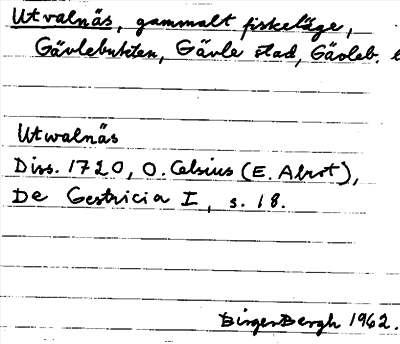 Utvalnäs, gammalt fiskeläge,
Gävlebukten, Gävle stad, Gävleb. l
Utwalnäs
Diss. 1720, O. Celsius (E. Alrot),
De Gestricia I, s. 18.
Birger Bergh 1962.